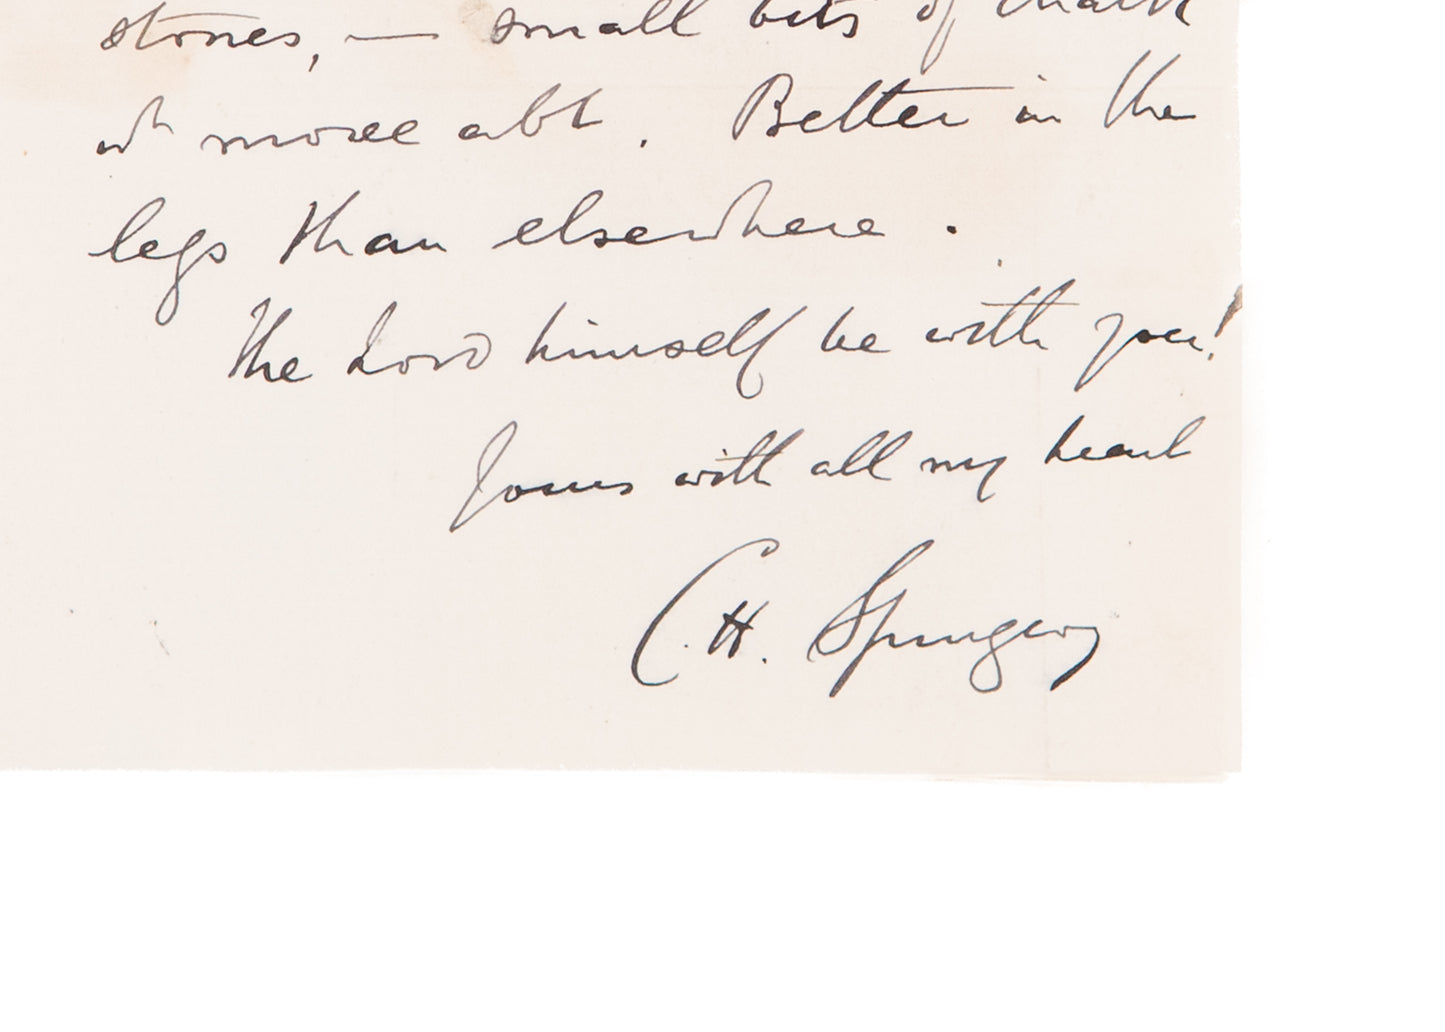 stones, — small bits of chalk
wh move abt. Better in the
legs than elsewhere.
The Lord himself be with you!
Yours with all my heart
C. H. Spurgeon